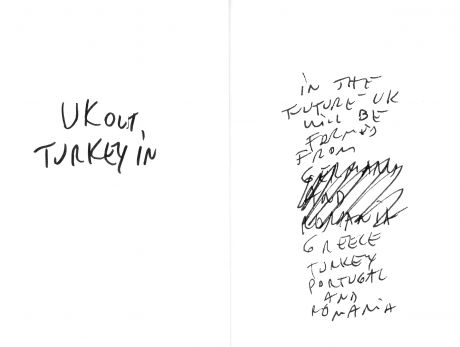 UK OUT,
TURKEY IN
IN THE
FUTURE - UK
WILL BE
FORMED
FROM
GERMANY
AND
ROMANIA
GREECE
TURKEY
PORTUGAL
AND
ROMANIA